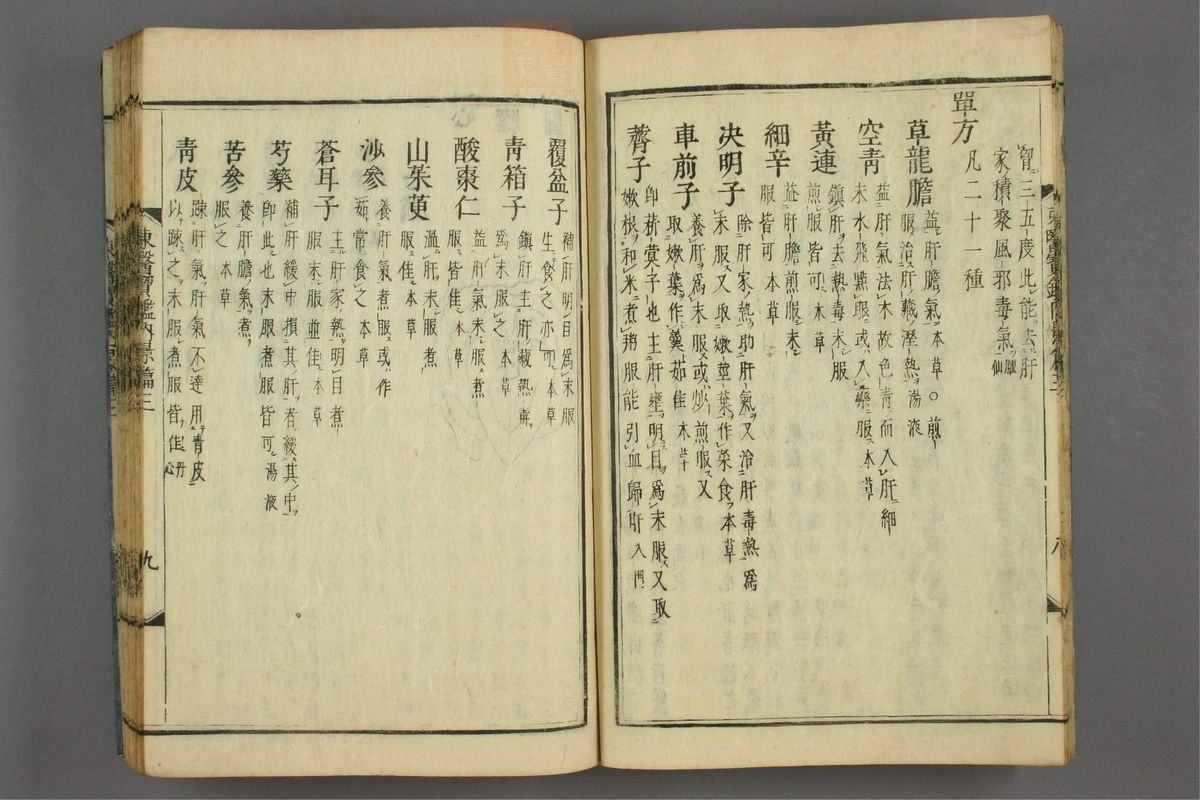 胷三五度此能去肝
家積聚風邪毒氣臞仙
單方
凡二十一種
草龍膽
益肝膽氣本草○煎
服治肝藏溼熱湯液
空青
益肝氣法木故色青而入肝細
末水飛點服或入藥服本草
黃連
鎮肝去熱毒末服
煎服皆可本草
細辛
益肝膽煎服末
服皆可本草
决明子
除肝家熱助肝氣又治肝毒熱爲
末服又取嫩莖葉作菜食本草
車前子
養肝爲末服或炒煎服又
取嫩葉作羹茹佳本草
薺子
即菥蓂子也主肝壅明目爲末服又取
嫩根和米煮粥服能引血歸肝入門
覆盆子
補肝明目爲末服
生食之亦可本草
青箱子
鎮肝主肝藏熱
爲末服之本草
酸棗仁
益肝氣末服煮
服皆佳本草
山茱萸
溫肝煎服煮
服佳本草
沙參
養肝氣煮服或作
茹常食之本草
蒼耳子
主肝家熱明目煮
服末服並佳本草
芍藥
補肝緩中損其肝者緩其中
即此也末服煮服皆可湯液
苦參
養肝膽氣煮
服之本草
青皮
疎肝氣肝氣不達用青皮
以疎之末服煮服皆佳丹心
東醫寶鑑內景篇三
九